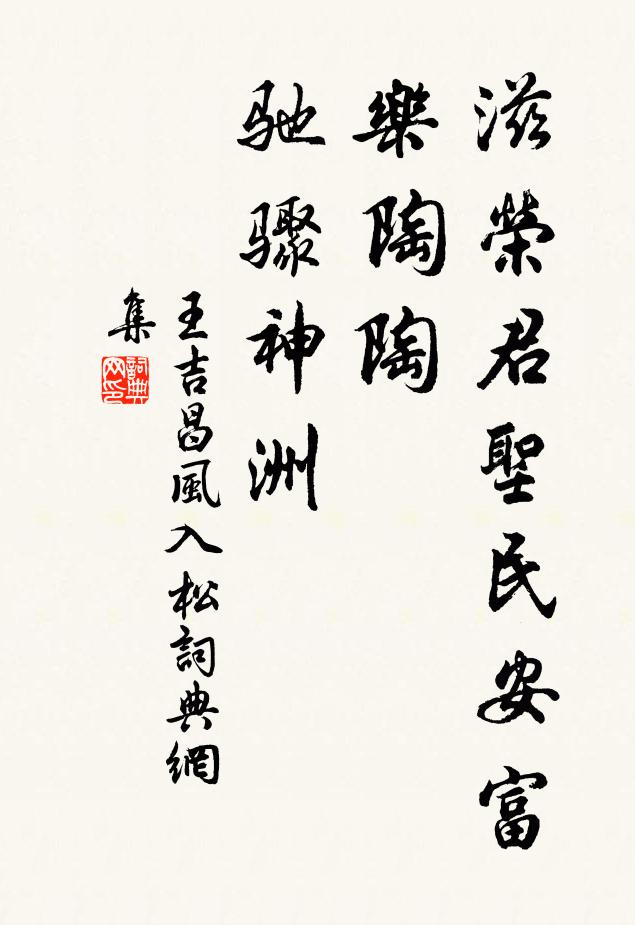 滋榮君聖民安富
樂陶陶
馳驟神洲
王吉昌風入松詞典網
集
詞典
网印